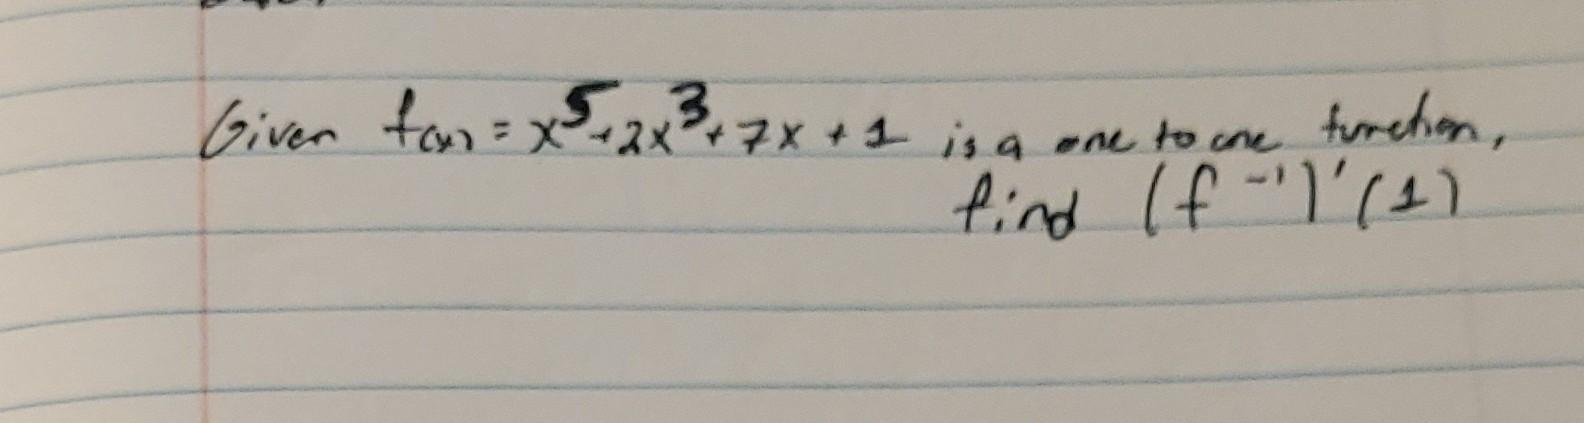 Given f(x) = x⁵ + 2x³ + 7x + 1 is a one to one function,
find (f⁻¹)'(1)